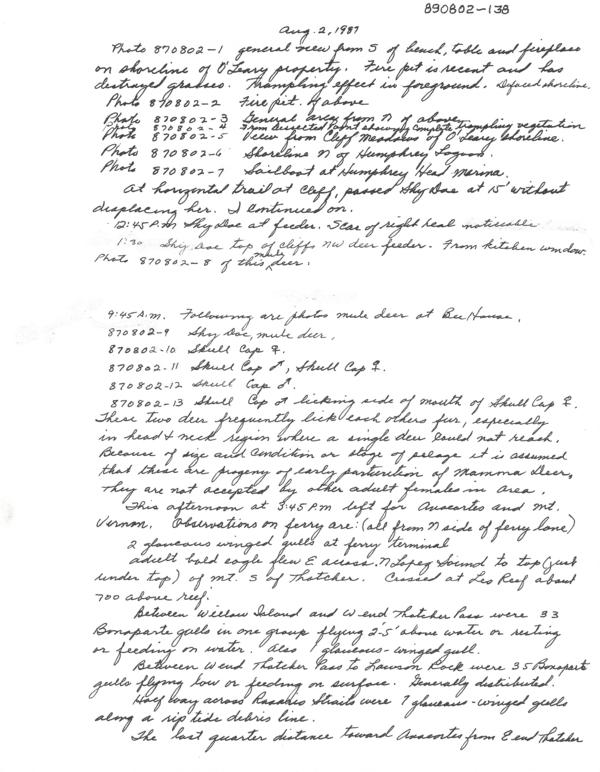 890802-138
Aug. 2, 1987
Photo 870802-1 general view from S of bench, table and fireplace
on shoreline of O'Leary property. Fire pit is recent and has
destroyed grasses. Trampling effect in foreground. Defaced shoreline.
Photo 870802-2 Fire pit of above
Photo 870802-3 General area from N of above
Photo 870802-4 From Dissected Point showing complete trampling vegetation
Photo 870802-5 View from Cliff Meadows of O'Leary shoreline.
Photo 870802-6 Shoreline N of Humphrey Lagoon.
Photo 870802-7 Sailboat at Humphrey Head Marina.
At horizontal trail at cliff, passed Shy Doe at 15' without
displacing her. I continued on.
12:45 P.M. Shy Doe at feeder. Scar of right heal noticeable
1:30 Shy Doe top of cliffs NW deer feeder. From kitchen window.
Photo 870802-8 of this mule deer.
9:45 A.M. Following are photos mule deer at Bee House.
870802-9 Shy Doe, mule deer.
870802-10 Skull Cap ♀.
870802-11 Skull Cap ♂, Skull Cap ♀.
870802-12 Skull Cap ♂.
870802-13 Skull Cap ♂ licking side of mouth of Skull Cap ♀.
These two deer frequently lick each others fur, especially
in head & neck region where a single deer could not reach.
Because of size and condition or stage of pelage it is assumed
that these are progeny of early parturition of Mamma Deer,
They are not accepted by other adult females in area.
This afternoon at 3:45 P.M left for Anacortes and Mt.
Vernon. Observations on ferry are: (all from N side of ferry lane)
2 glaucous winged gulls at ferry terminal
adult bald eagle flew E across N Lopez Sound to top (just
under top) of Mt. S of Thatcher. Crossed at Leo Reef about
700 above reef.
Between Willow Island and W end Thatcher Pass were 33
Bonaparte gulls in one group flying 2'-5' above water or resting
or feeding on water. Also 1 glaucous-winged gull.
Between W end Thatcher Pass to Lawson Rock were 35 Bonaparte
gulls flying low or feeding on surface. Generally distributed.
Half way across Rosario Straits were 7 glaucous-winged gulls
along a rip tide debris line.
The last quarter distance toward Anacortes from E end Thatcher